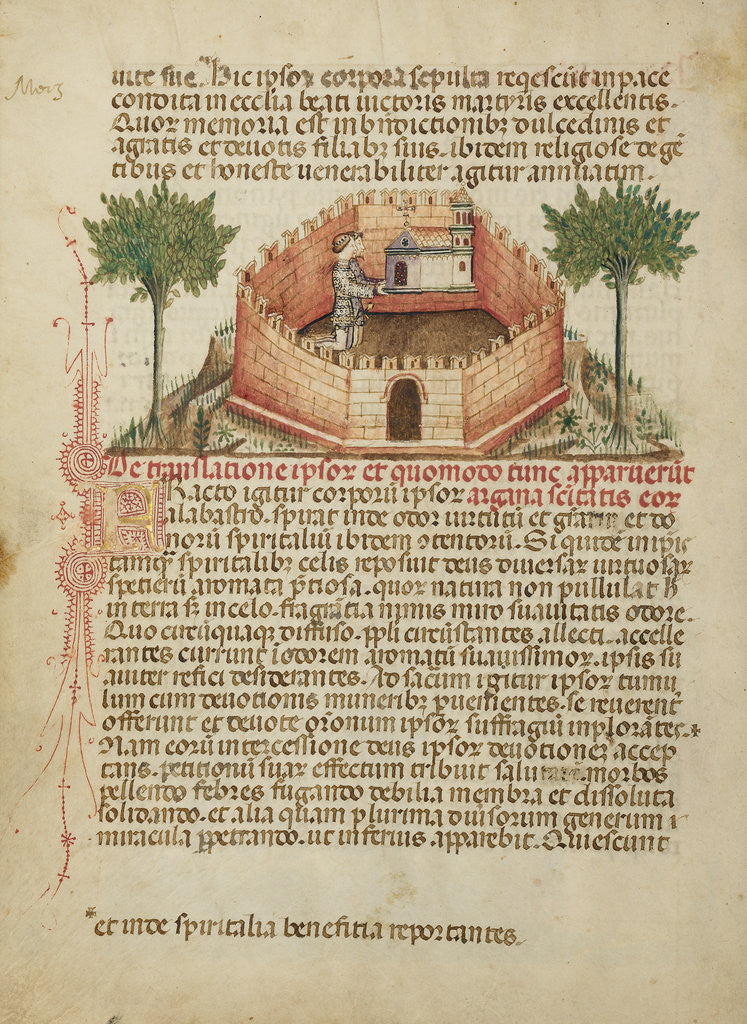 uite sue. Hic ipsoꝝ corpora sepulta reqescūt in pace
condita in ecclīa beati uictoris martyris excellentis.
Quoꝝ memoria est in bn̄dictionibꝫ dulcedinis et
a gratis et deuotis filiabꝫ suis. ibidem religiose degē
tibus et honeste uenerabiliter agitur annuatim.
De translatione ipsoꝝ et quomodo tunc apparuerūt
Facto igitur corporū ipsoꝝ argana scītatis eoꝝ
alabastro. spirat inde odor uirtutū et gr̄arū et do
norū spiritaliū ibidem ꝯtentorū. Si quidē in ip̄is
tamqꝫ spiritalibꝫ celis reposuit deus diuersaꝝ uirtuosaꝝ
specierū aromata p̄tiosa. quoꝝ natura non pullulat h̄
in terra sꝫ in celo. fragrātia nimis miro suauitatis odore.
Quo circūquaqꝫ diffuso. pp̄li circūstantes allecti. accele
rantes currunt ī odorem aromatū suauissimoꝝ. ipsis su
auiter refici desiderantes. Ad sacrum igitur ipsoꝝ tumu
lum cum deuotionis muneribꝫ ꝓuenientes. se reuerent᷑
offerunt et deuote or̄onum ipsoꝝ suffragiū inplorātes.+
Nam eorū intercessione deus ipsoꝝ deuotionē accep
tans. petitionū suaꝝ effectum tribuit salutarē. morbos
pellendo febres fugando debilia membra et dissoluta
solidando. et alia quam plurima diuisorum generum
miracula ꝑpetrando. ut inferius apparebit. Quiescunt
+et inde spiritalia benefitia reportantes.